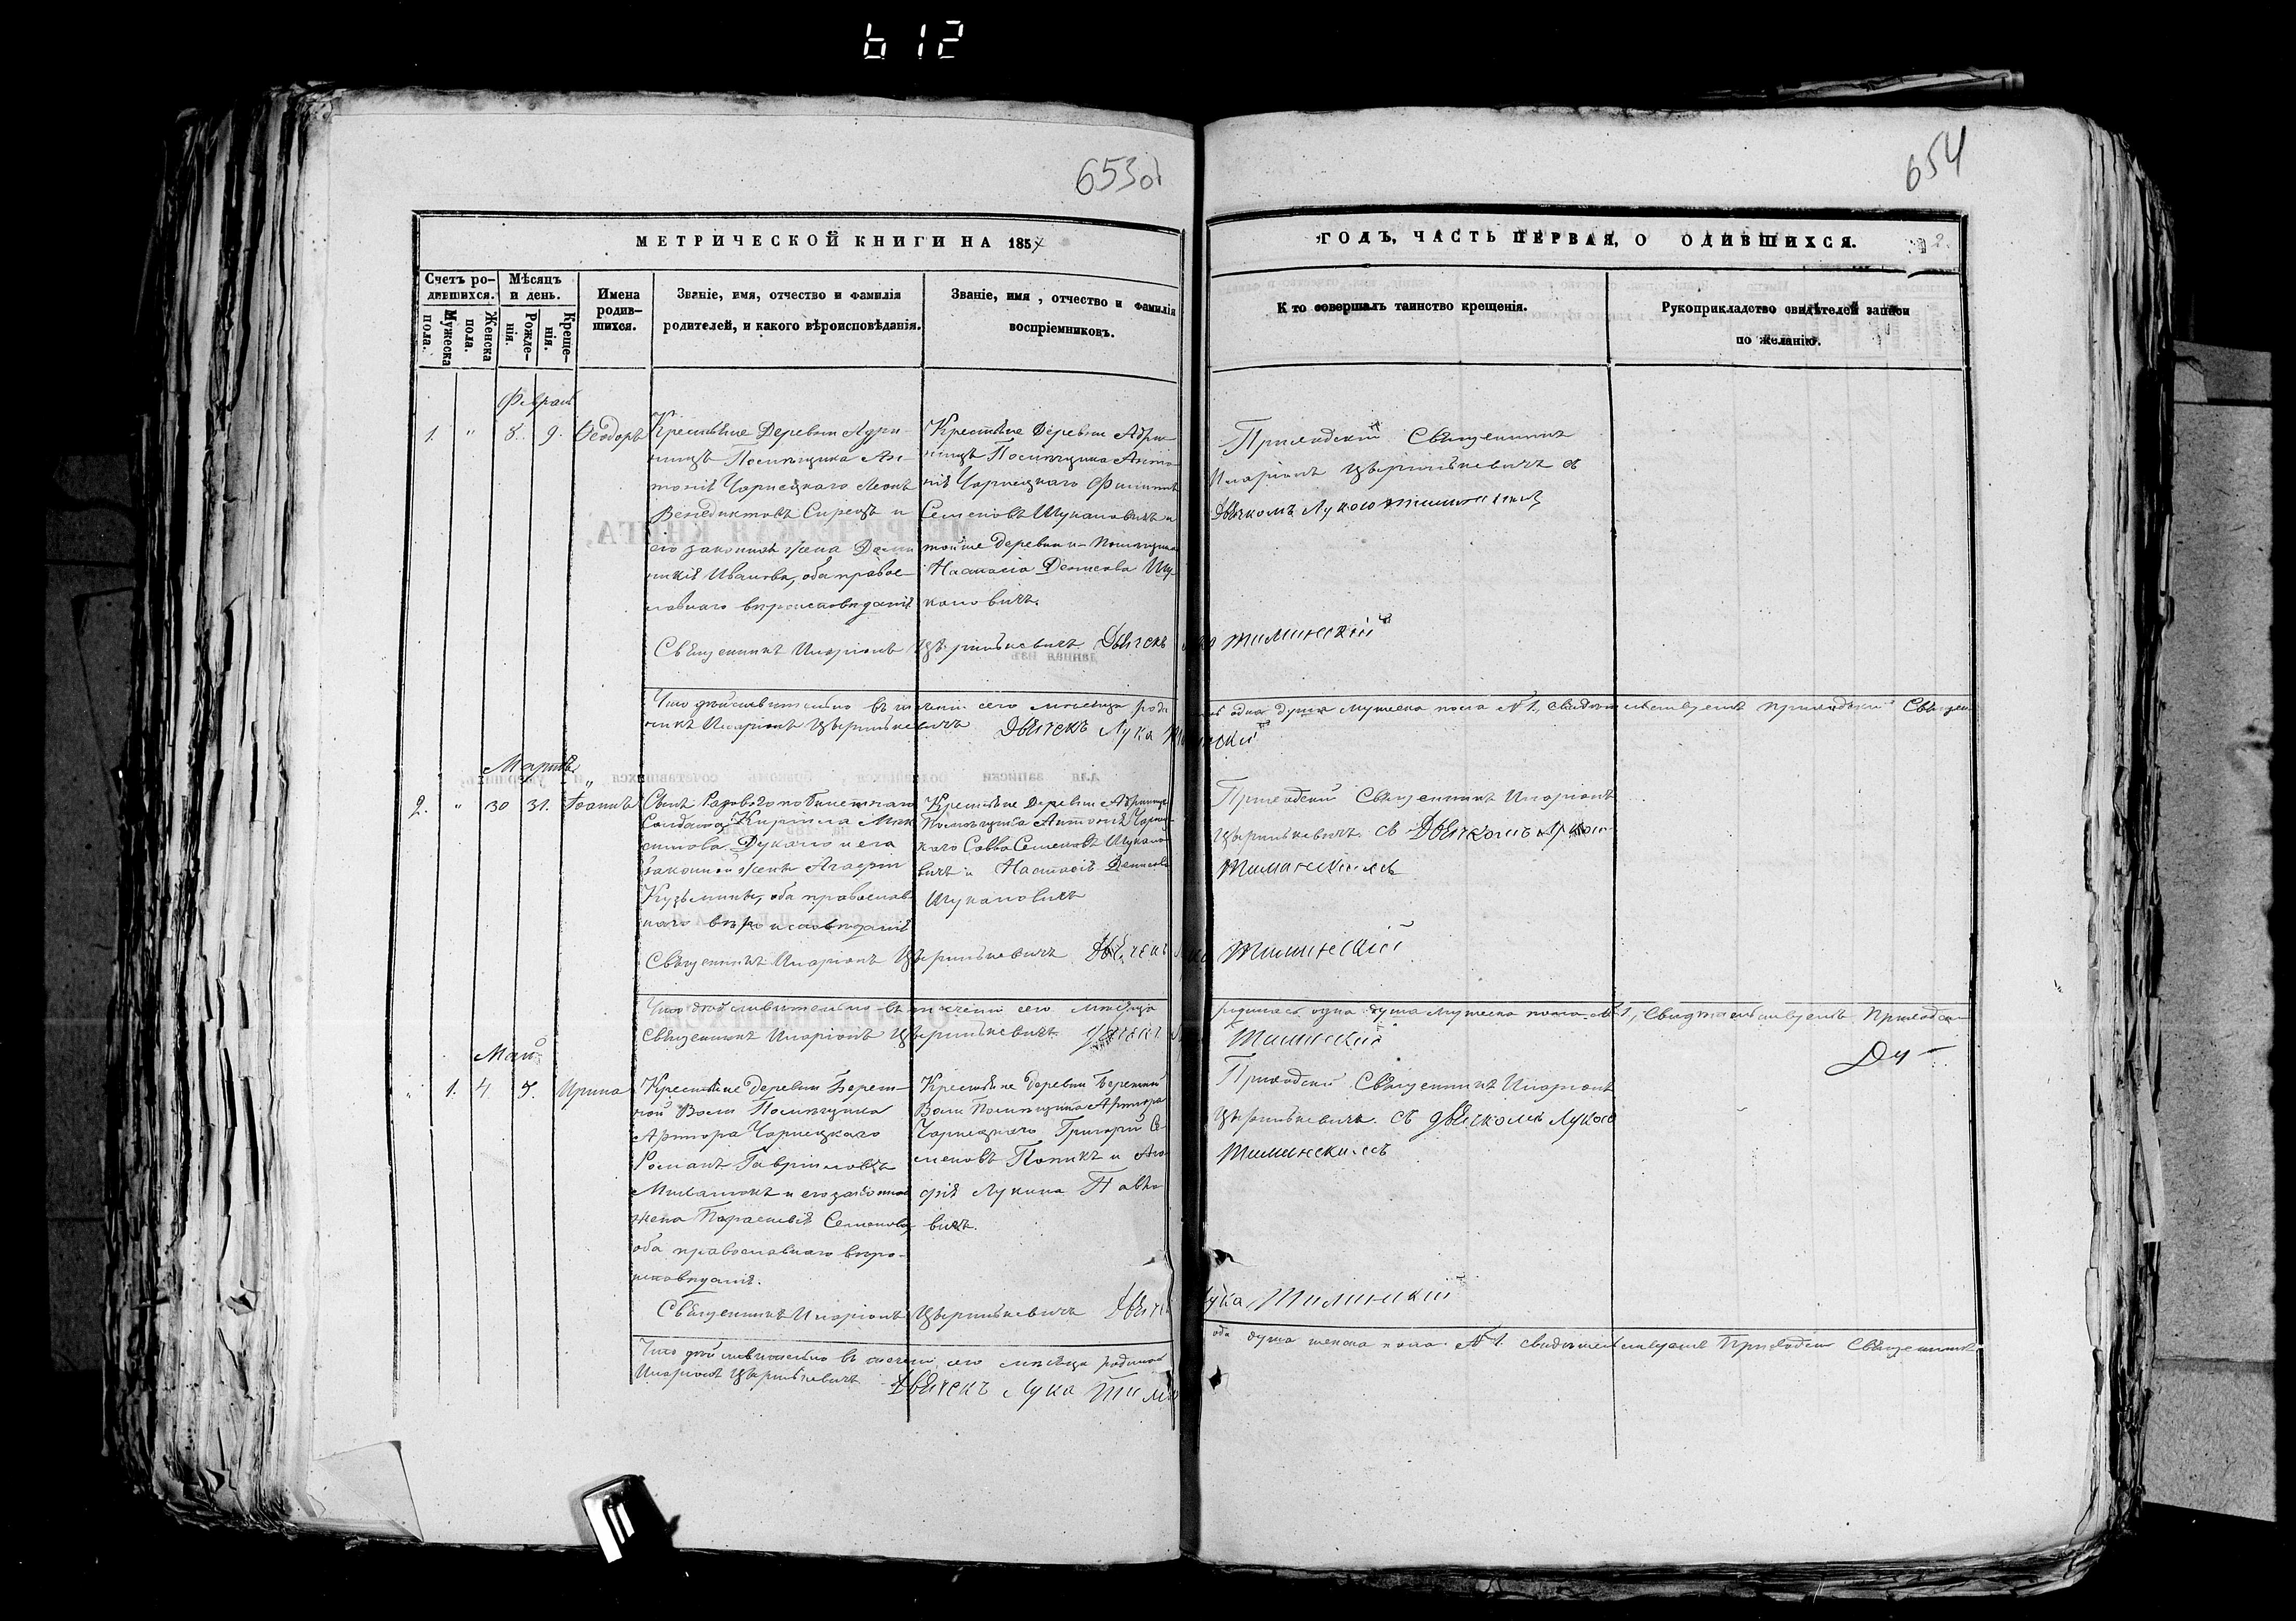 612
653об
654
МЕТРИЧЕСКОЙ КНИГИ НА 1857
ГОДЪ, ЧАСТЬ ПЕРВАЯ, О ОДИВШИХСЯ.
2.
Счетъ ро-
дившихся.
Мужеска
пола.
Женска
пола.
Мѣсяцъ
и день.
Рожде-
нія.
Креще-
нія.
Имена
родив-
шихся.
Званіе, имя, отчество и фамилія
родителей, и какого вѣроисповѣданія.
Званіе, имя, отчество и фамилія
воспріемниковъ.
Кто совершалъ таинство крещенія.
Рукоприкладство свидѣтелей записи
по желанію.
Февраль
1. " 8. 9. Ѳеодоръ
Крестьяне Деревни
Помѣщика Ан-
тонія Чарнецкаго Леонъ
Венедиктовъ Сирецъ и
его законная жена Доми
никія Иванова, оба правос-
лавнаго вѣроисповѣданія
Крестьяне Деревни
Помѣщика Анто
нія Чарнецкаго Филиппъ
Семеновъ Шукановичъ и
тойже деревни и Помѣщика
Настасія Денисова Шу-
кановичъ.
Приходскій Священникъ
Иларіонъ съ
Дьячкомъ Лукою
Священникъ Иларіонъ Дьячекъ Лука Тиминскій
Что дѣйствительно въ теченіи сего мѣсяца роди
лась одна душа мужеска пола №1, свидѣтельствуетъ приходскій Священ
никъ Иларіонъ Дьячекъ Лука Тиминскій
Мартъ
2. " 30 31. Іоаннъ
Сынъ Рядового
Солдата Кирилла Мак
симова и его
законной жены Агафіи
Кузьминой, оба православ
наго вѣроисповѣданія
Крестьяне Деревни
Помѣщика Антонія Чарнец
каго Савва Семеновъ Шукано
вичъ и Настасія Денисова
Шукановичъ
Приходскій Священникъ Иларіонъ
съ Дьячкомъ Лукою
Тиминскимъ
Священникъ Иларіонъ Дьячекъ Лука Тиминскій
Что дѣйствительно въ теченіи сего мѣсяца
родилась одна душа мужеска пола №1, свидѣтельствуетъ Приходскій
Священникъ Иларіонъ Дьячекъ Тиминскій
Май
" 1. 4. 5. Ирина
Крестьяне деревни Берез-
ной Воли Помѣщика
Артора Чарнецкаго
Романъ Гавріиловъ
и его законная
жена Параскевія Семенова,
оба православнаго вѣро-
исповѣданія.
Крестьяне деревни Березной
Воли Помѣщика Артора
Чарнецкаго Григорій Се
меновъ Попикъ и Ага
фія Лукина Павло
вичъ.
Приходскій Священникъ Иларіонъ
съ дьячкомъ Лукою
Тиминскимъ
Священникъ Иларіонъ Дьячекъ Лука Тиминскій
Что дѣйствительно въ теченіи сего мѣсяца родилась
одна душа женска пола №1. свидѣтельствуетъ Приходскій Священникъ
Иларіонъ Дьячекъ Лука